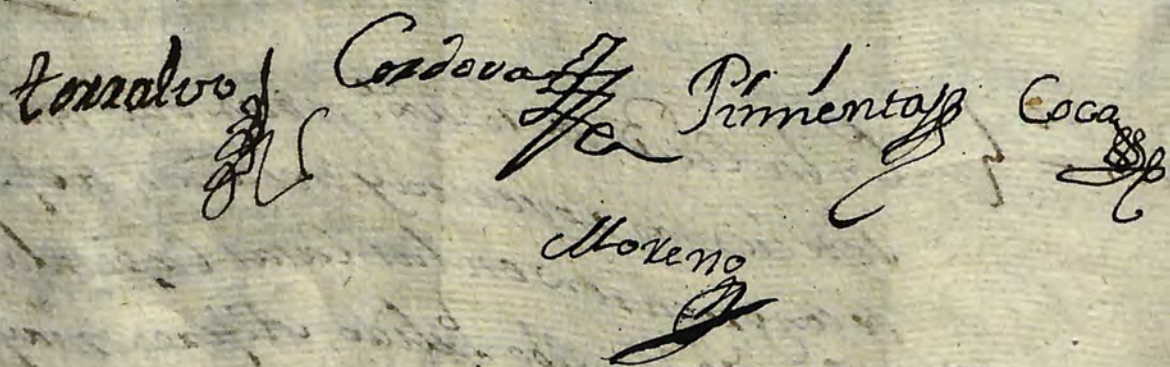 torralvo Cordova Pimenta Coca
Moreno